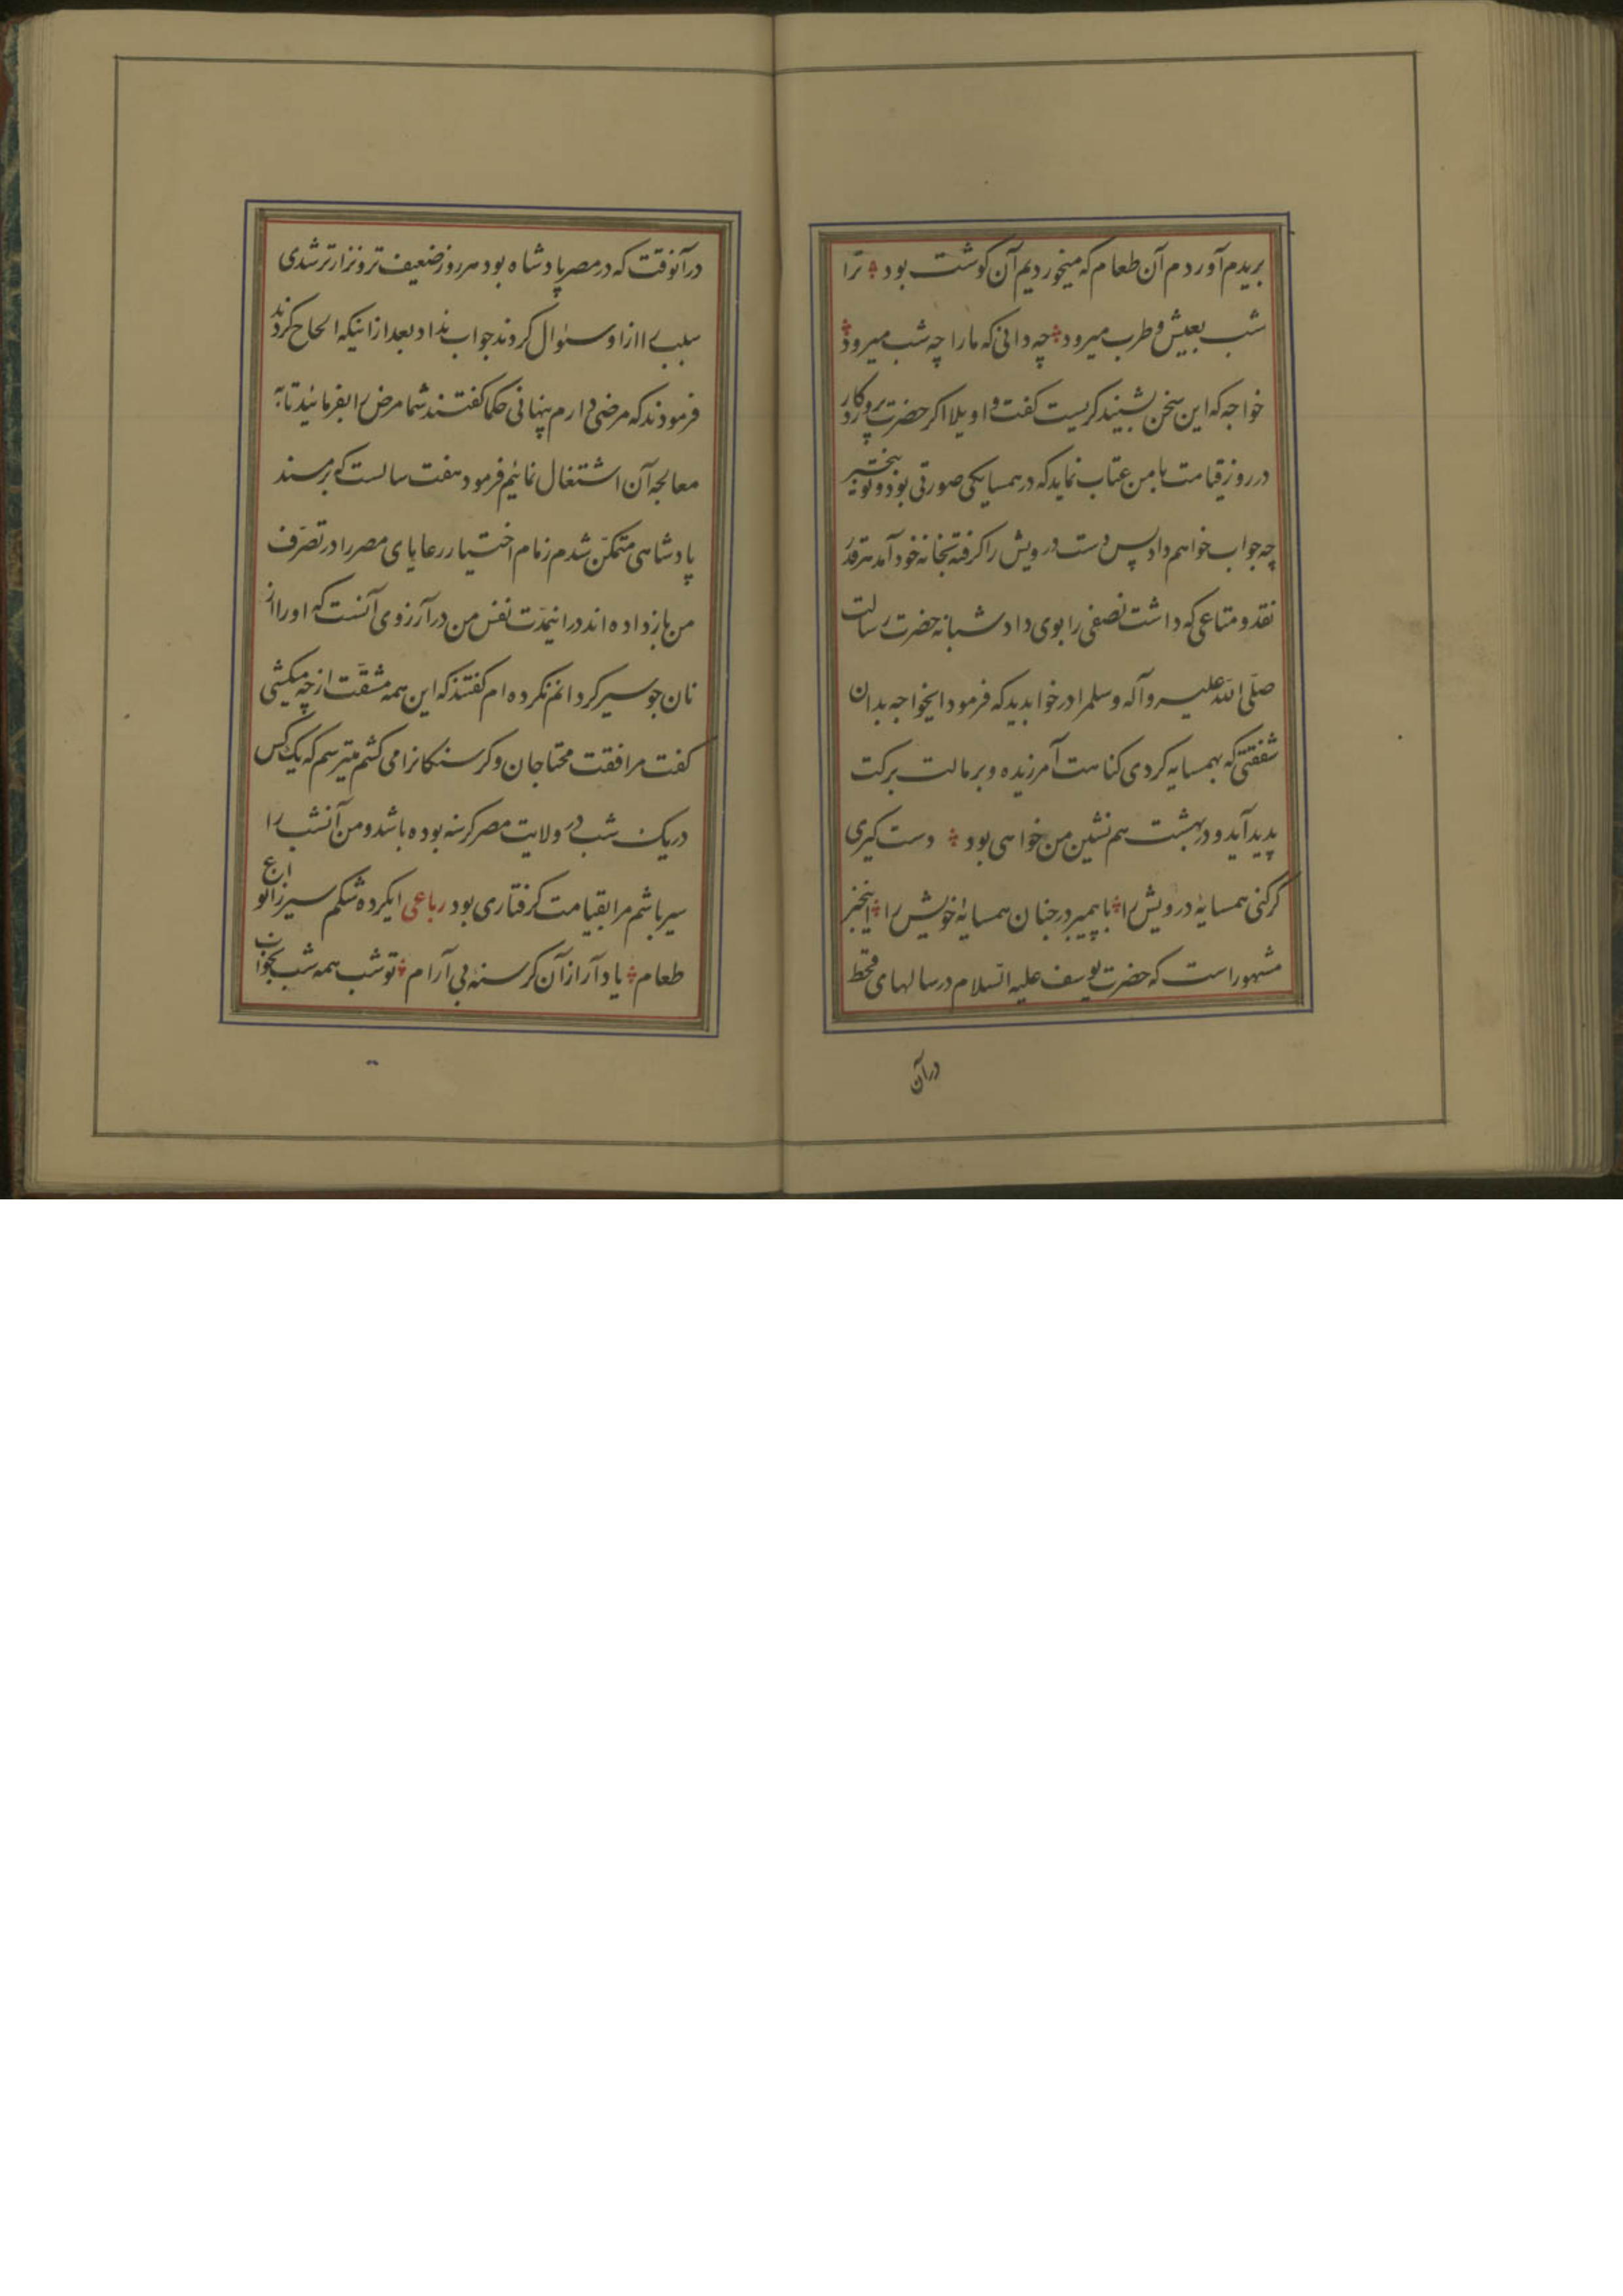 بریدم آوردم آن طعام که میخوردیم آن گوشت بود ؞ ترا
شب بعیش و طرب میرود ؞ چه دانی که ما را چه شب میرود ؞
خواجه که این سخن بشنید کریست کفت وا ویلا اکر حضرت پروردکار
در روز قیامت با من عتاب نماید که در همسایکی صورتی بود و تو بیخبر
چه جواب خواهم داد پس دست درویش را کرفته بخانه خود آمد هر قدر
نقد و متاعی که داشت نصفی را بوی داد شبانه حضرت رسالت
صلّی الله علیه و آله و سلم را در خواب دید که فرمود ایخواجه بدان
شفقتی که بهمسایه کردی کناهت آمرزیده و بر مالت برکت
پدید آید و در بهشت هم نشین من خواهی بود ؞ دست کیری
کر کنی همسایهٔ درویش را ؞ با پیمبر در جنان همسایهٔ خویش را ؞ اینخبر
مشهور است که حضرت یوسف علیه السلام در سالهای قحط
درآن
در آنوقت که در مصر پادشاه بود هر روز ضعیف تر و نزار تر شدی
سبب را از او سئوال کردند جواب نداد بعد از اینکه الحاح کردند
فرمودند که مرضی دارم پنهانی حکما کفتند شما مرض را بفرمائید تا به
معالجه آن اشتغال نمائیم فرمود هفت سالست که بر مسند
پادشاهی متمکّن شدم زمام اختیار رعایای مصر را در تصرّف
من باز داده اند در اینمدّت نفس من در آرزوی آنست که او را از
نان جو سیر کردانم نکرده ام کفتند که این همه مشقّت از چه میکشی
کفت مرافقت محتاجان و کرسنکانرا می کشم میترسم که یک کس
در یک شب در ولایت مصر کرسنه بوده باشد و من آنشب را
سیر باشم مرا بقیامت کرفتاری بود رباعی ایکرده شکم سیر ز انواع
طعام ؞ یاد آر از آن کرسنهٔ بی آرام ؞ تو شب همه شب بخواب